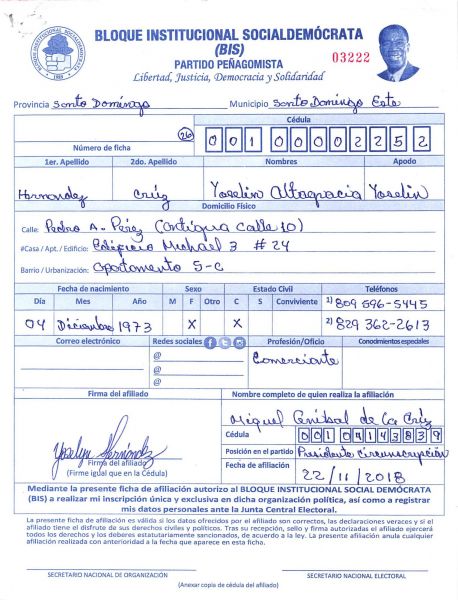 BLOQUE INSTITUCIONAL SOCIALDEMÓCRATA
(BIS)
PARTIDO PEÑAGOMISTA
Libertad, Justicia, Democracia y Solidaridad
03222
Provincia Santo Domingo Municipio Santo Domingo Este
Cédula
Número de ficha 26 001 0000 2252
1er. Apellido 2do. Apellido Nombres Apodo
Hernandez Cruz Yoselin Altagracia Yoselin
Domicilio Físico
Calle: Pedro A. Pérez (Antigua calle 10)
#Casa / Apt. / Edificio: Edificio Michael 3 # 24
Barrio / Urbanización: Apartamento 5-C
Fecha de nacimiento Sexo Estado Civil Teléfonos
Día Mes Año M F Otro C S Conviviente 1) 809 596-5445
04 Diciembre 1973 X X 2) 829 362-2613
Correo electrónico Redes sociales Profesión/Oficio Conocimientos especiales
@ Comerciante
@
@
Firma del afiliado Nombre completo de quien realiza la afiliación
Miguel Anibal de La Cruz
Cédula 001 0414383 9
Yoselyn Hernández
Firma del afiliado
(Firme igual que en la Cédula)
Posición en el partido Presidente circunscripción
Fecha de afiliación 22/11/2018
Mediante la presente ficha de afiliación autorizo al BLOQUE INSTITUCIONAL SOCIAL DEMÓCRATA
(BIS) a realizar mi inscripción única y exclusiva en dicha organización política, así como a registrar
mis datos personales ante la Junta Central Electoral.
La presente ficha de afiliación es válida si los datos ofrecidos por el afiliado son correctos, las declaraciones veraces y si el
afiliado tiene el disfrute de sus derechos civiles y políticos. Tras su recepción, sello y firma autorizadas el afiliado ejercerá
todos los derechos y los deberes estatutariamente sancionados, de acuerdo a la ley. La presente afiliación anula cualquier
afiliación realizada con anterioridad a la fecha que aparece en esta ficha.
SECRETARIO NACIONAL DE ORGANIZACIÓN SECRETARIO NACIONAL ELECTORAL
(Anexar copia de cédula del afiliado)